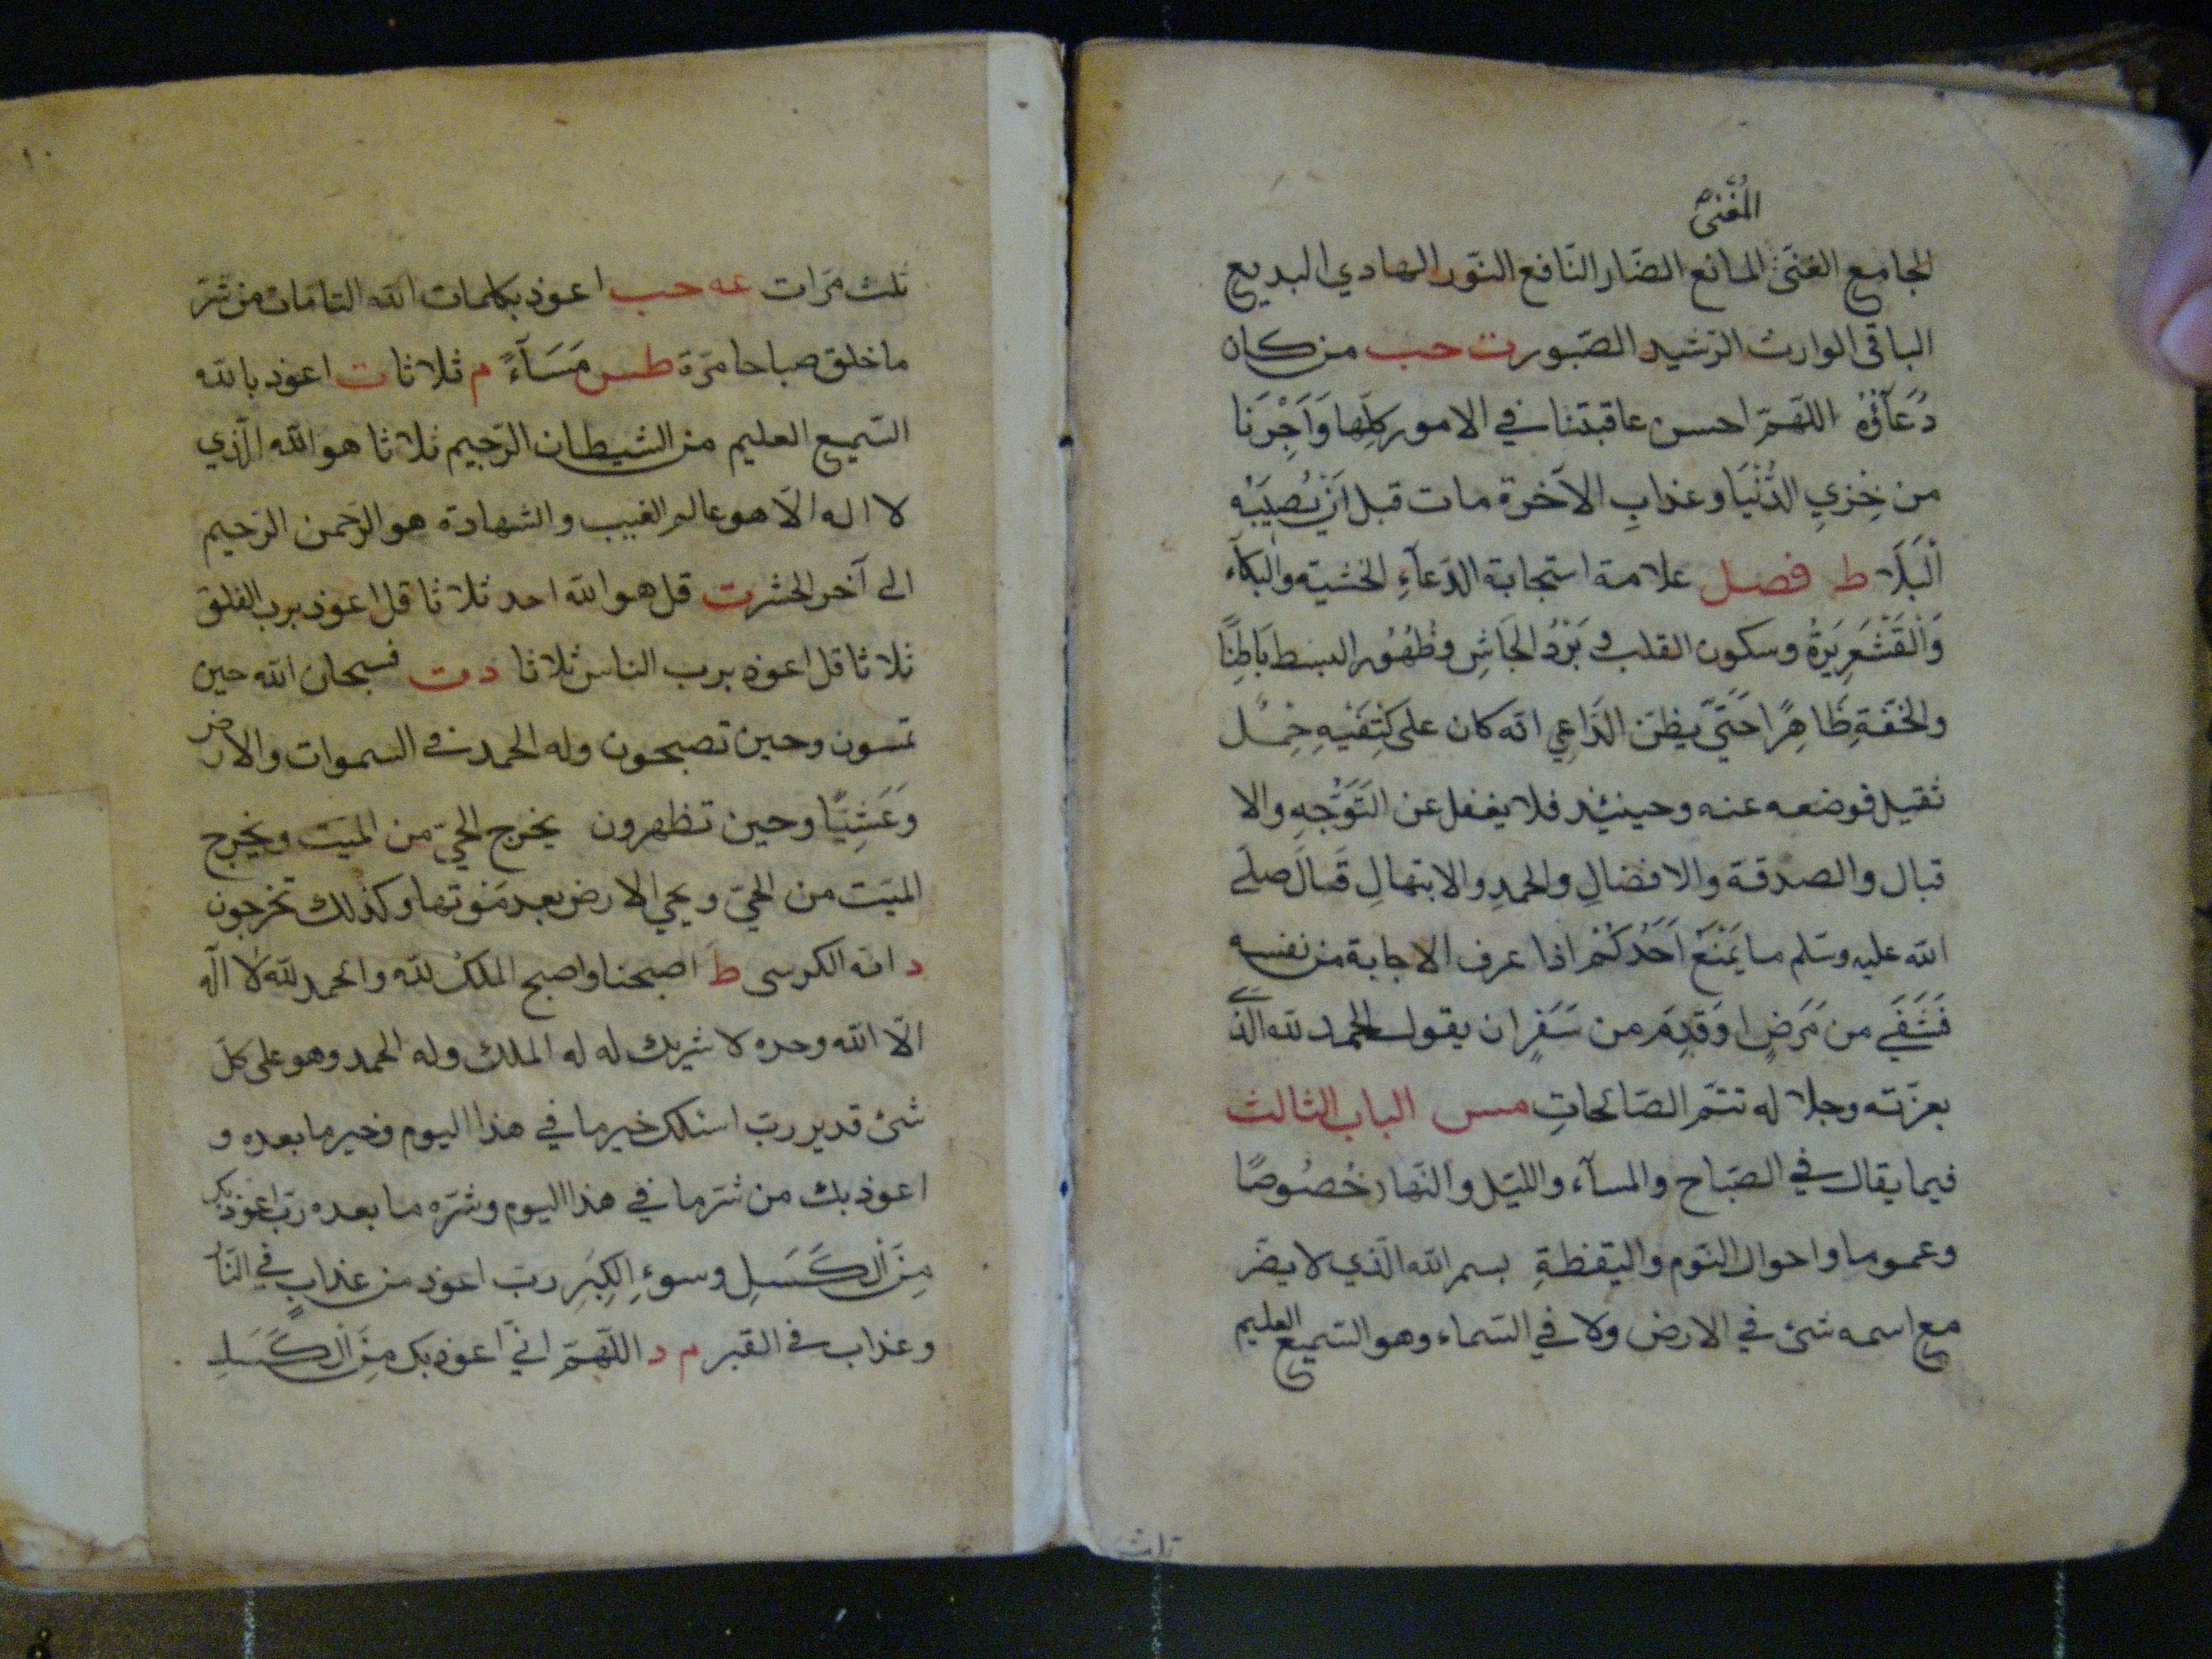 المُغْنِيُ
الجامع الغنى المانع الضّار النّافع النّور الهادي البديع
الباقى الوارث الرّشيد الصّبور ت حب من كان
دُعَآؤُهُ اللّهمّ احسن عاقبتنا في الامور كلِّها وَاَجِرْنَا
من خِزيِ الدُّنْيَا وعذابِ الآخرة مات قبل اَنْ يُصِيبَه
الْبَلَا ط فصل علامة استجابة الدّعآءِ الخشية والبكآء
وَالْقَشْعَرِيَرةُ وسكون القلب و بَرْدُ الجَاشِ وظُهُور البسط بَاطِنًا
والخفّةِ ظَاهِرًا حَتّىَ يظنّ الدَّاعِي انّه كان على كَتِفَيْهِ حِمْل
ثقيل فوضعه عنه وحينئذ فلا يغفل عن التَّوَجُّهِ والا
قبال والصدقة والافضالِ والحمدِ والابتهالِ قَالَ صلّى
الله عليه وسّلم ما يَمْنَعُ اَحَدُكُمْ اذا عرف الاجابة من نفسه
فَشُفَِيَ من مَرَضٍ اوقَدِمَ من سَفَرٍ ان يقول الحمد لله الّذي
بعزّته وجلاله تتمّ الصّالحاتِ مس الباب الثالث
فيما يقال في الصّباح والمسآء والليّل والنّهار خُصُوصًا
وعموما واحوال النّوم واليقظةِ بسم الله الّذي لا يضّر
مع اسمه شئ في الارض ولا في السّماء وهو السّميع العليم
ثلث
ثلث مرّات عه حب اعوذ بكلمات الله التامّات من شرّ
ما خلق صباحا مرّة طس مَسَآءً م ثلاثا ت اعوذ بالله
السّميع العليم من الشيطان الرّجيم ثلاثا هو الله الّذي
لا اله الّا هو عالم الغيب والشهادة هو الرّحمن الرّحيم
الى آخر الحشر ت قل هو الله احد ثلاثا قل اعوذ برب الفلق
ثلاثا قل اعوذ برب الناس ثلاثا د ت فسبحان الله حين
تمسون وحين تصبحون وله الحمد في السموات والارض
وَعَشِيًّا وحين تظهرون يخرج الحيّ من الميّت ويخرج
الميّت من الحيّ ويحي الارض بعد مَوتها وكذلك تخرجون
د اية الكرسى ط اصبحنا واصبح الملكُ لله والحمد لله لا اله
الّا الله وحده لا شريك له له الملك وله الحمد وهو على كلّ
شئ قدير ربّ اسئلك خير ما في هذا اليوم وخير ما بعده و
اعوذ بك من شرّ ما في هذا اليوم وشرّه ما بعده ربّ اعوذ بك
مِنَ الْكَسَلِ وسوءِ الكِبَرِ ربّ اعوذ من عذابٍ في النّار
وعذاب في القبر م د اللّهمّ انّي اعوذ بك مِنَ الْكَسَلِ